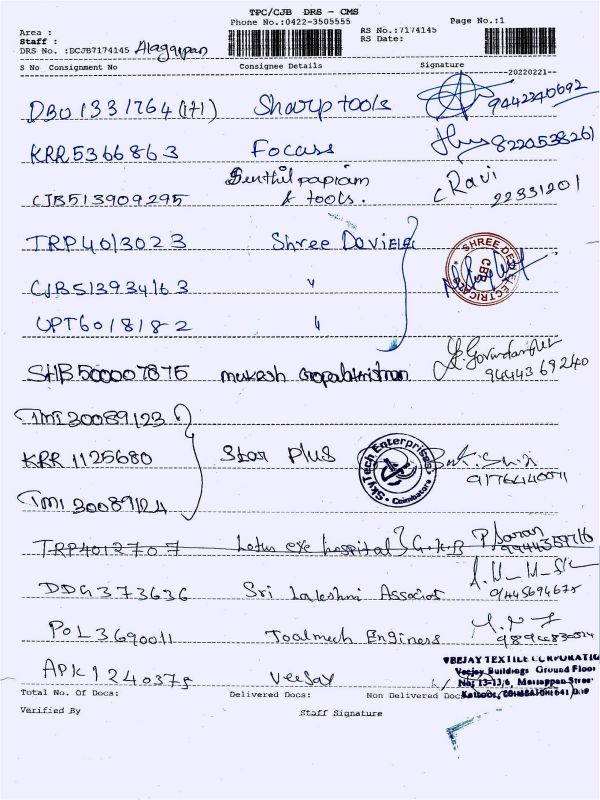 TPC/CJB DRS - CMS
Phone No.:0422-3505555
Page No.:1
Area :
Staff :
DRS No. :DCJB7174145 Alagappan
RS No.:7174145
RS Date:
S No Consignment No Consignee Details Signature
--20220221--
DBU1331764 (1+1) Sharp tools 9442240692
KRR5366863 Focass 8220538261
CJB513909295 Senthil papiram & tools. C Ravi 22331201
TRP4013023 Shree Devi Ele
SHREE DEVI ELECTRICALS CBE
CJB513934163 "
UPT6018182 "
SHB500007875 mukesh Gopalakrishnan 9444369240
TMI30089123
KRR1125680 Star Plus 9176440071
SkyTech Enterprises Coimbatore
TMI30089124
TRP4012707 Lotus eye hospital } G.K.B P. Saran
DDG373636 Sri Lakshmi Associat 9445694675
POL3690011 Toolmech Engineers
APK1240375 Veejay
VEEJAY TEXTILE CORPORATIO
Veejay Buildings Ground Floor
No: 13-13/6, Mariappan Street
Kattoor, COIMBATORE 641
Total No. Of Docs: Delivered Docs: Non Delivered Docs:
Verified By Staff Signature